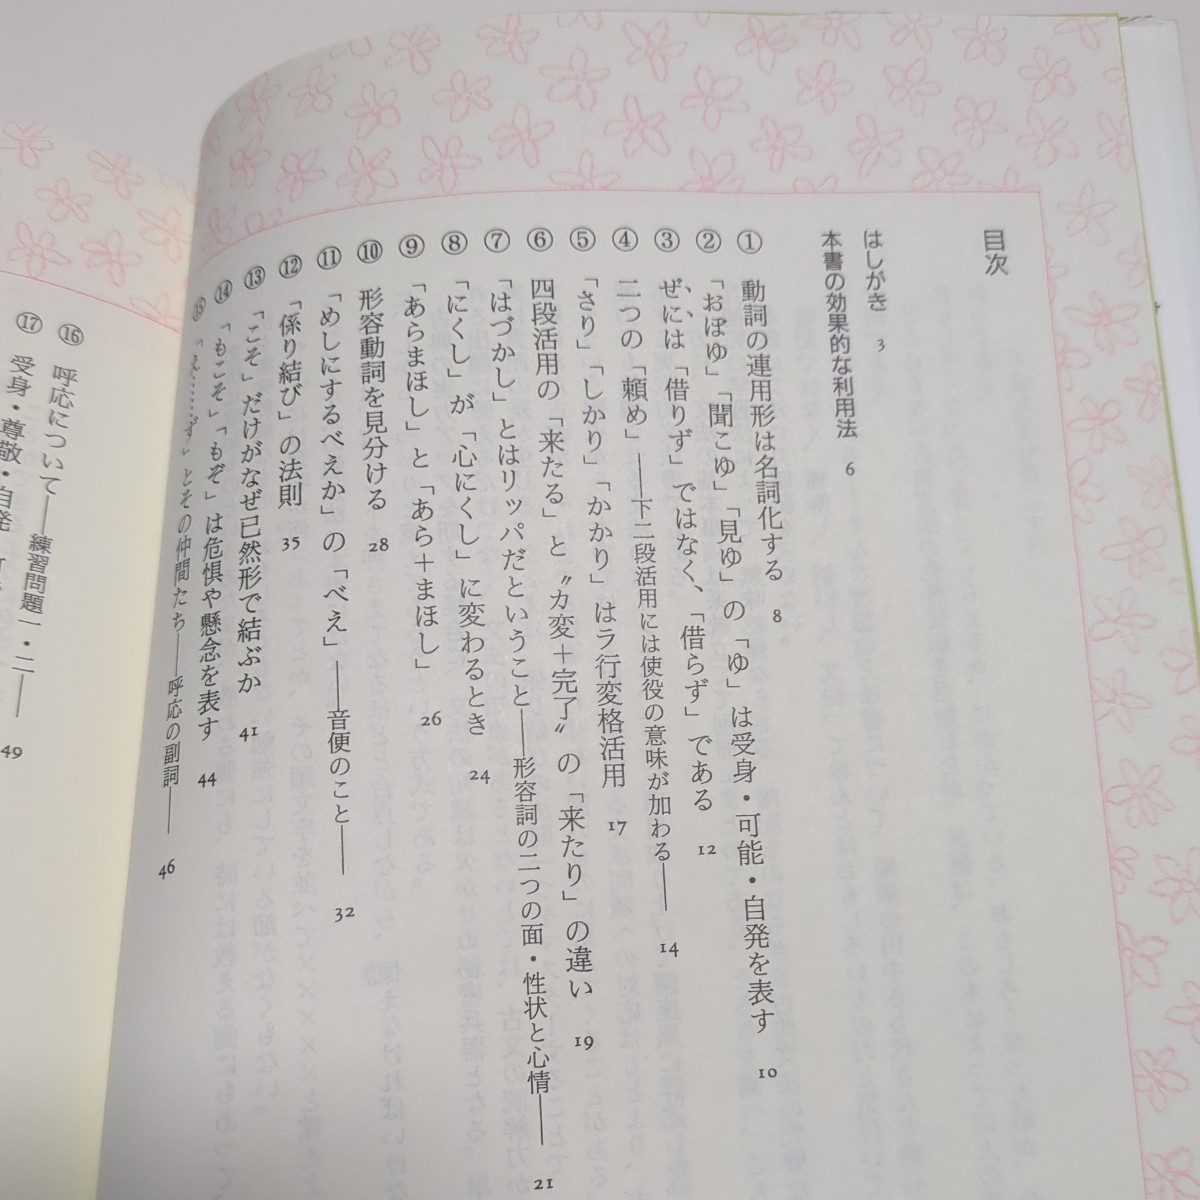 目次
はしがき 3
本書の効果的な利用法 6
① 動詞の連用形は名詞化する 8
② 「おぼゆ」「聞こゆ」「見ゆ」の「ゆ」は受身・可能・自発を表す 10
③ ぜ、に、は「借りず」ではなく、「借らず」である 12
④ 二つの「頼め」――下二段活用には使役の意味が加わる―― 14
⑤ 「さり」「しかり」「かかり」はラ行変格活用 17
⑥ 四段活用の「来たる」と〝カ変＋完了〟の「来たり」の違い 19
⑦ 「はづかし」とはリッパだということ――形容詞の二つの面・性状と心情―― 21
⑧ 「にくし」が「心にくし」に変わるとき 24
⑨ 「あらまほし」と「あら＋まほし」 26
⑩ 形容動詞を見分ける 28
⑪ 「めしにするべえか」の「べえ」――音便のこと―― 32
⑫ 「係り結び」の法則 35
⑬ 「こそ」だけがなぜ已然形で結ぶか 41
⑭ 「もこそ」「もぞ」は危惧や懸念を表す 44
⑮ 「え……ず」とその仲間たち――呼応の副詞―― 46
⑯ 呼応について――練習問題一・二―― 49
⑰ 受身・尊敬・自発